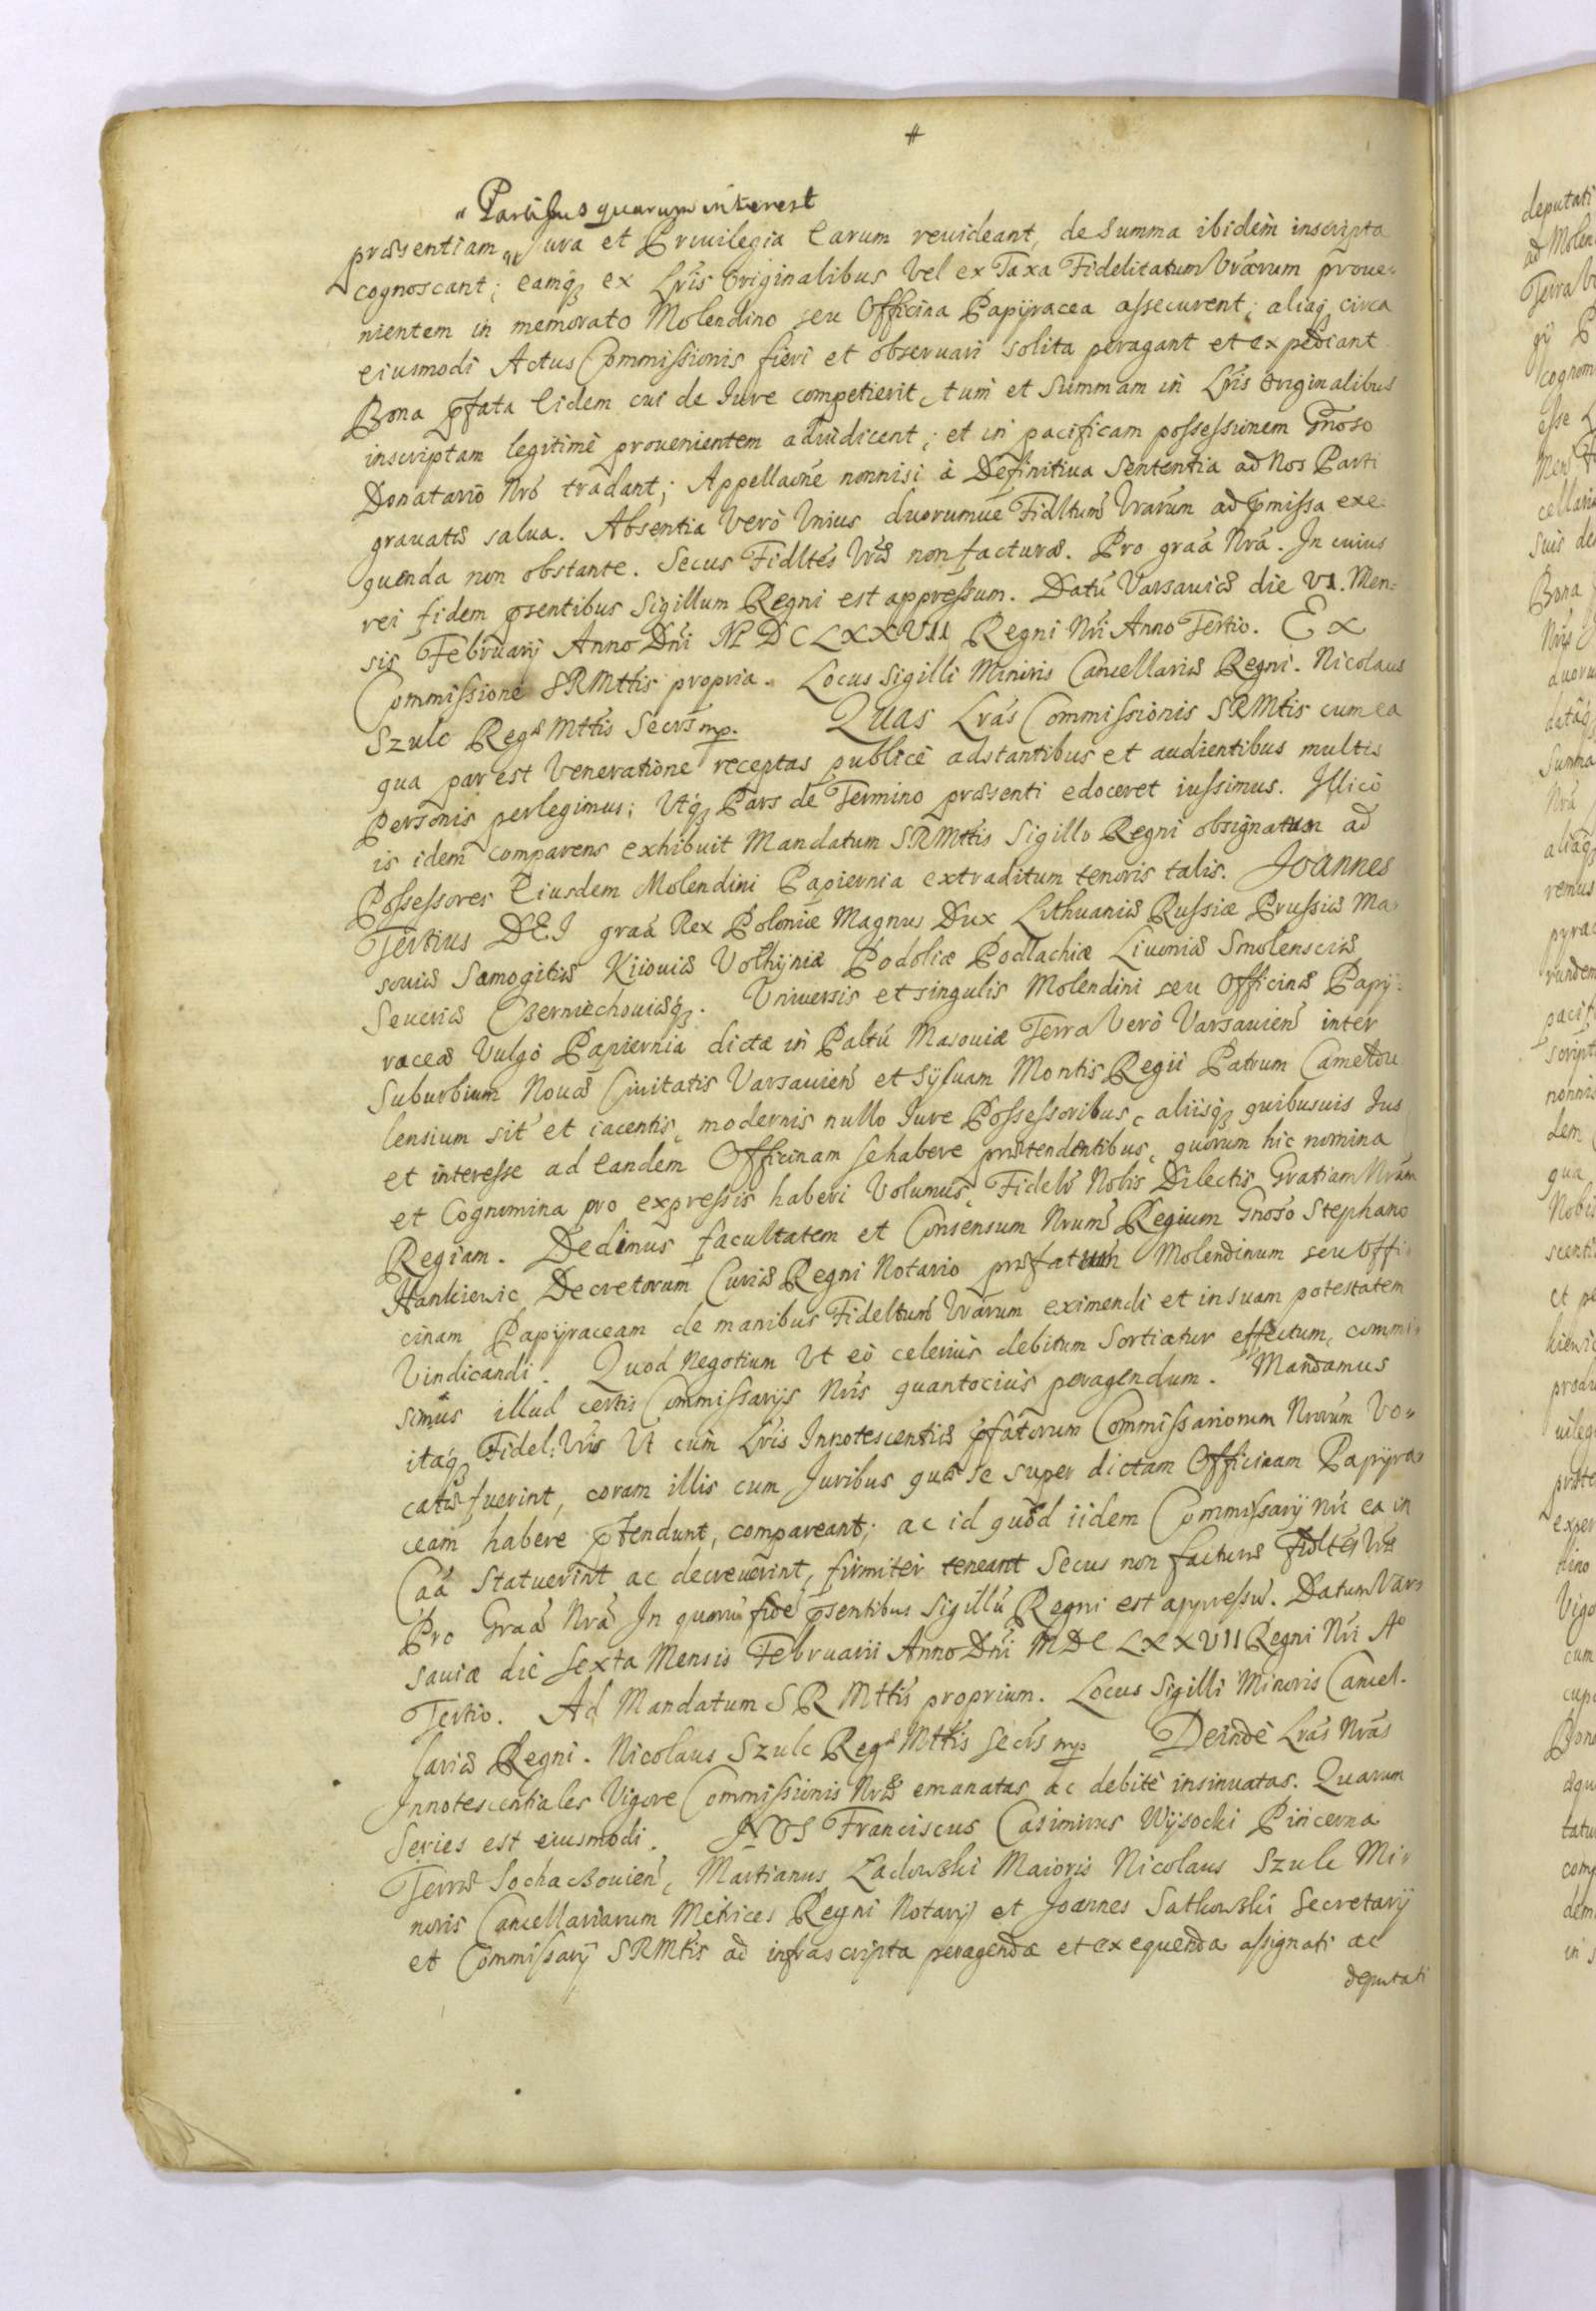 #
" Partibus quarum interest
præsentiam " Jura et Privilegia Earum reuideant, de Summa ibidem inscripta
cognoscant; eamq; ex Lris Originalibus Vel ex Taxa Fidelitatum Vrarum proue-
nientem in memorato Molendino seu Officina Papÿracea assecurent; aliaq; circa
eiusmodi Actus Commissionis fieri et obseruari solita peragant et expediant.
Bona pfata Eidem cui de Iure competierit, tum et Summam in Lris originalibus
inscriptam legitimè prouenientem adiudicent; et in pacificam possessionem Gnoso
Donatario Nro tradant; Appellaone nonnisi à Definitiua Sententia ad Nos Parti
grauatæ salua. Absentia Verò Vnius duorumue Fidltum Vrarum ad pmissa exe-
quenda non obstante. Secus Fidltes Vræ non facturæ. Pro graa Nra. In cuius
rei fidem psentibus Sigillum Regni est appressum. Datu Varsauiæ die VI. Men-
sis Februarÿ Anno Dni M D C L X X V I I Regni Nri Anno Tertio. Ex
Commissione SRMttis propria. Locus Sigilli Minoris Cancellariæ Regni. Nicolaus
Szulc Regæ Mttis Secris mp. Quas Lras Commissionis SRMtis cum ea
qua par est Veneratione receptas publicè adstantibus et audientibus multis
Personis perlegimus; Vtq; Pars de Termino præsenti edoceret iussimus. Illicò
is idem comparens exhibuit Mandatum SRMttis Sigillo Regni obsignatum ad
Possessores Eiusdem Molendini Papiernia extraditum tenoris talis. Joannes
Tertius DEI graa Rex Poloniæ Magnus Dux Lithuaniæ Russiæ Prussiæ Ma-
souiæ Samogitiæ Kiiouiæ Volhÿniæ Podoliæ Podlachiæ Liuoniæ Smolensciæ
Seueriæ Czerniechouiæq;. Vniuersis et singulis Molendini seu Officinæ Papÿ-
raceæ Vulgò Papiernia dictæ in Paltu Masouiæ Terra Verò Varsauien inter
Suburbium Nouæ Ciuitatis Varsauien et Sÿluam Montis Regii Patrum Cameldu
lensium sit et iacentis, modernis nullo Iure Possessoribus, aliisq; quibusuis Ius
et interesse ad Eandem Officinam se habere prætendentibus, quorum hic nomina
et Cognomina pro expressis haberi Volumus, Fidelr Nobis Dilectis Gratiam Nram
Regiam. Dedimus facultatem et Consensum Nrum Regium Gnoso Stephano
Hankiewic Decretorum Curiæ Regni Notario præfatum Molendinum seu Offi-
cinam Papÿraceam de manibus Fideltum Vrarum eximendi et in suam potestatem
Vindicandi. Quod Negotium Vt eò celeriùs debitum Sortiatur effectum, commi-
simus illud certis Commissarÿs Nris quantociùs peragendum. Mandamus
itaq; Fidel: Vris Vt cum Lris Innotescentiis pfatorum Commissariorum Nrorum Vo-
catæ fuerint, coram illis cum Juribus quæ se super dictam Officinam Papÿra-
ceam habere ptendunt, compareant; ac id quod iidem Commissarÿ Nri ea in
Caa Statuerint ac decreuerint, firmiter teneant Secus non facturæ Fidltes Vræ
Pro Graa Nra In quorum fide psentibus Sigillu Regni est appressu. Datum Var-
sauiæ die Sexta Mensis Februarii Anno Dni MDCLXXVII Regni Nri Ao
Tertio. Ad Mandatum S R Mttis proprium. Locus Sigilli Minoris Cancel-
lariæ Regni. Nicolaus Szulc Regæ Mttis Secris mp Deinde Lras Nras
Innotescentiales Vigore Commissionis Nræ emanatas ac debitè insinuatas. Quarum
Series est eiusmodi. NOS Franciscus Casimirus Wÿsocki Pincerna
Terræ Sochaczouien, Martianus Ladowski Maioris Nicolaus Szulc Mi-
noris Cancellariarum Metrices Regni Notarÿ et Joannes Satkowski Secretarÿ
et Commissarÿ SRMtis ad infrascripta peragenda et exequenda assignati ac
deputati